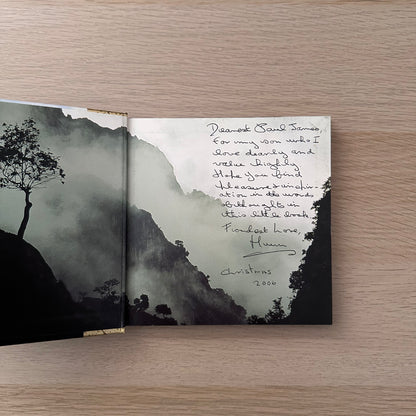 Dearest Paul James,
For my son who I
love dearly and
value highly
Hope you find
pleasure & inspir-
ation in the words
& thoughts in
this little book
Fondest Love,
Mum
Christmas
2006